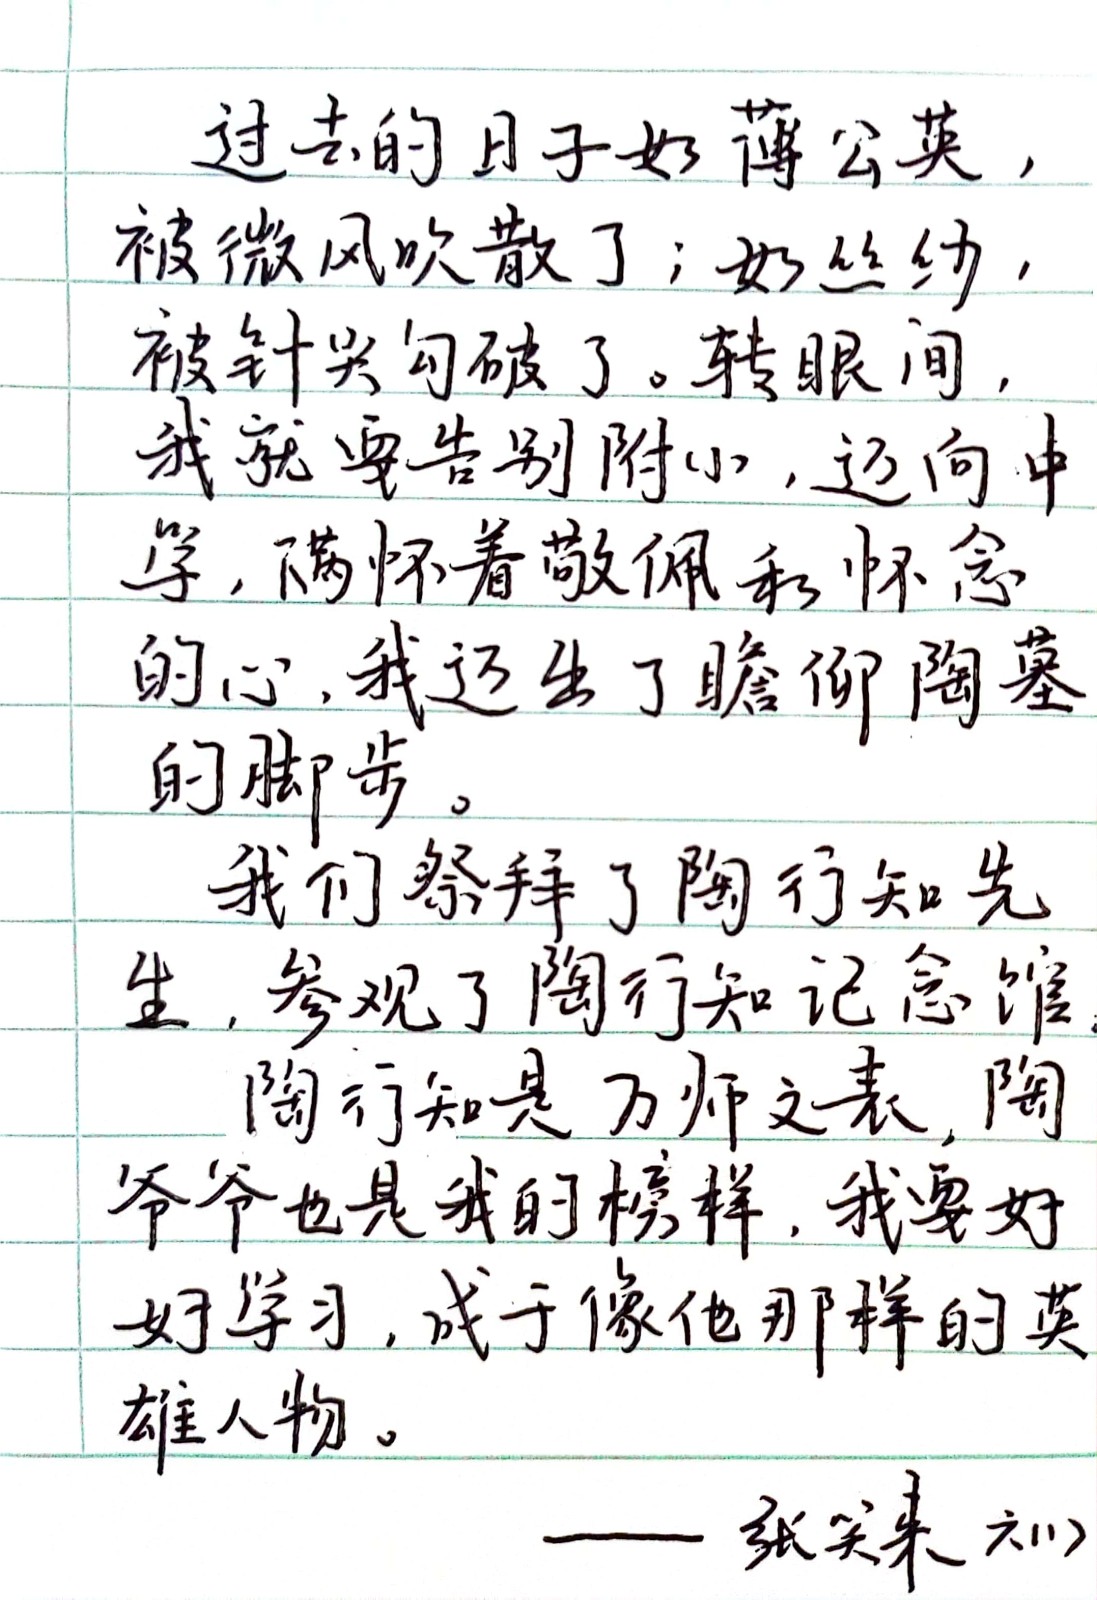 过去的日子如薄公英，
被微风吹散了；如丝纱，
被针尖勾破了。转眼间，
我就要告别附小，迈向中
学，满怀着敬佩和怀念
的心，我迈出了瞻仰陶墓
的脚步。
我们祭拜了陶行知先
生，参观了陶行知记念馆。
陶行知是万师文表，陶
爷爷也是我的榜样，我要好
好学习，成于像他那样的英
雄人物。
—— 张笑来 六(1)